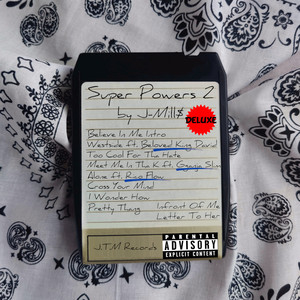 Super Powers 2
by J-Mill$
DELUXE
Believe In Me Intro
Westside ft. Beloved King David
Too Cool For The Hate
Meet Me In The K ft.
Alone ft. Rico Flow
Cross Your Mind
I Wonder How
Pretty Thang
Infront Of Me
Letter To Her
J.T.M Records
PARENTAL
ADVISORY
EXPLICIT CONTENT